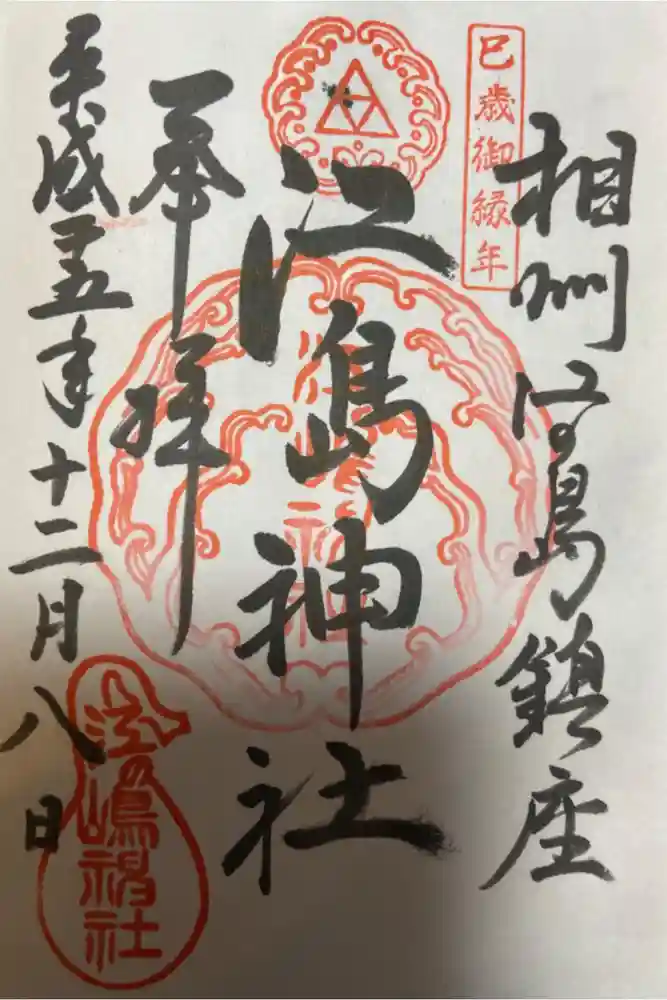 巳歳御縁年
相州江島鎮座
江島神社
奉拝
平成二十五年十二月八日
江の嶋神社